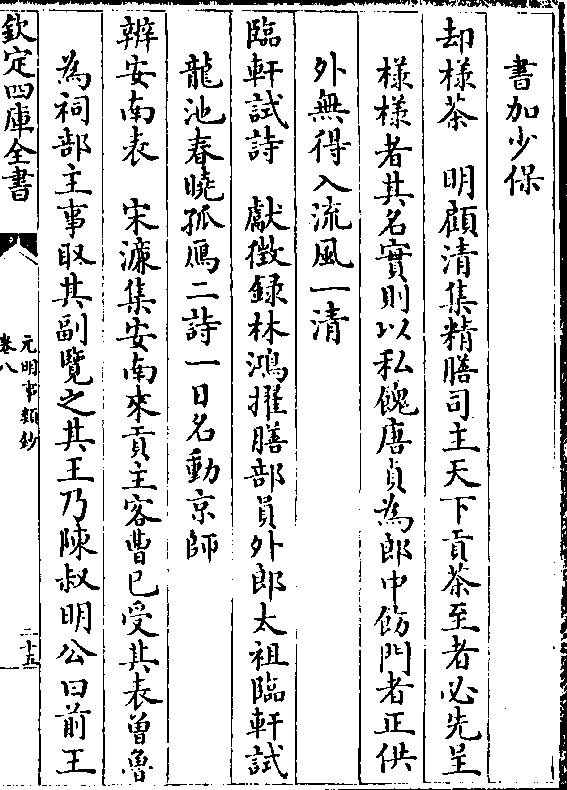 書加少保
却様茶　明顧清集精膳司主天下貢茶至者必先呈
様様者其名實則以私餽唐貞為郎中飭門者正供
外無得入流風一清
臨軒試詩　獻徴録林鴻擢膳部員外郎太祖臨軒試
龍池春曉孤鴈二詩一日名動京師
辨安南表　宋濂集安南來貢主客曹已受其表曽魯
為祠部主事取其副覽之其王乃陳叔明公曰前王
欽定四庫全書
元明事類鈔
卷八
二十五